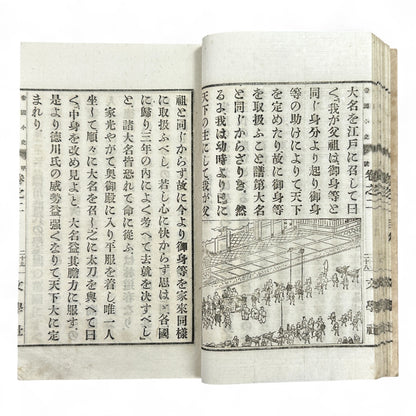 大名を江戸に召して曰
く「我が父祖は御身等と
同じ身分より起り御身
等の助けによりて天下
を定めたり故に御身等
を取扱ふこと譜第大名
と同じからざりき、然
るに我は幼時より已に
天下の主にして我が父
祖と同じからず故に今より御身等を家來同樣
に取扱ふべし、若し心に快からず思はゞ各國
に歸り三年の内によく考へて去就を決すべし」
と、諸大名皆恐れて命に從ふ、
家光やがて奥御殿に入り平服を着し唯一人
坐して順々に大名を召し之に太刀を與へて曰
く「中身を改め見よ」と大名益其膽力に服す
是より德川氏の威勢益强くなりて天下大に定
まれり、
帝國小史
卷之二
二十九
文學社